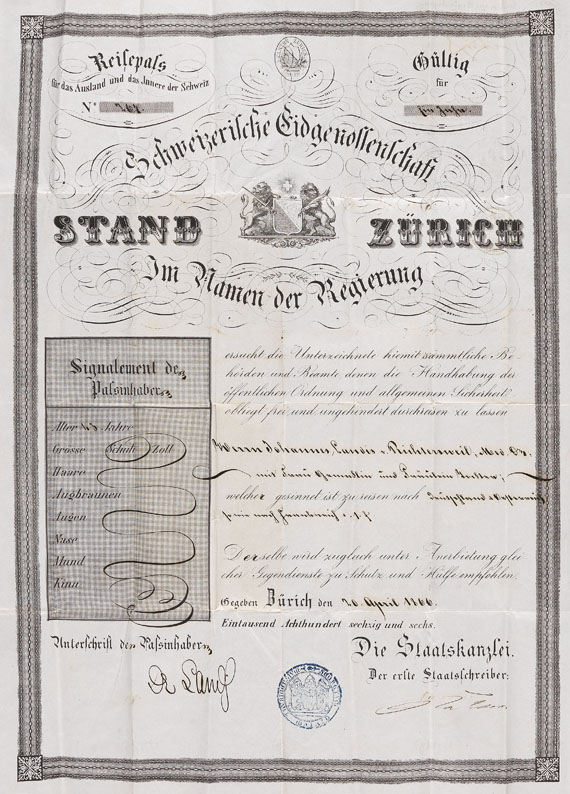 Reisepass
für das Ausland und das Innere der Schweiz
N°
Gültig
für
ein Jahr.
Schweizerische Eidgenossenschaft
STAND ZÜRICH
Im Namen der Regierung
Signalement des
Passinhabers
Alter 43 Jahre
Grösse Schuh Zoll
Haare
Augbraunen
Augen
Nase
Mund
Kinn
ersucht die Unterzeichnete hiemit sämmtliche Be-
hörden und Beamte denen die Handhabung der
öffentlichen Ordnung und allgemeinen Sicherheit
obliegt frei und ungehindert durchreisen zu lassen
Herrn Johannes v. Richterweil, Med. Dr.
mit Frau Gemahlin und Fräulein
welcher gesinnet ist zu reisen nach
Derselbe wird zugleich unter Anerbietung glei-
cher Gegendienste zu Schutz und Hülfe empfohlen.
Gegeben Zürich den 20. April 1866.
Eintausend Achthundert sechzig und sechs.
Unterschrift des Passinhabers
Die Staatskanzlei.
Der erste Staatsschreiber: